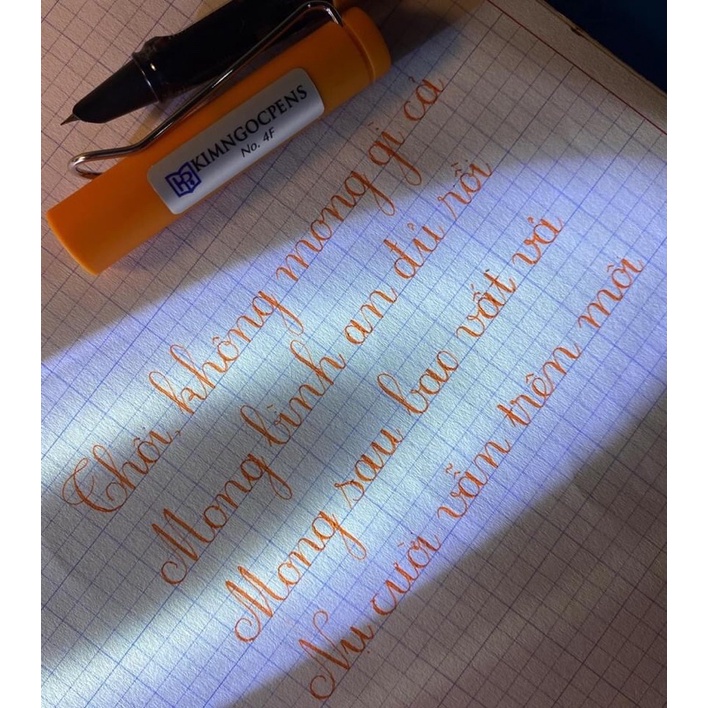 KIMNGOCPENS
No. 4F
Thôi, không mong gì cả
Mong bình an đủ rồi
Mong sau bao vất vả
Nụ cười vẫn trên môi